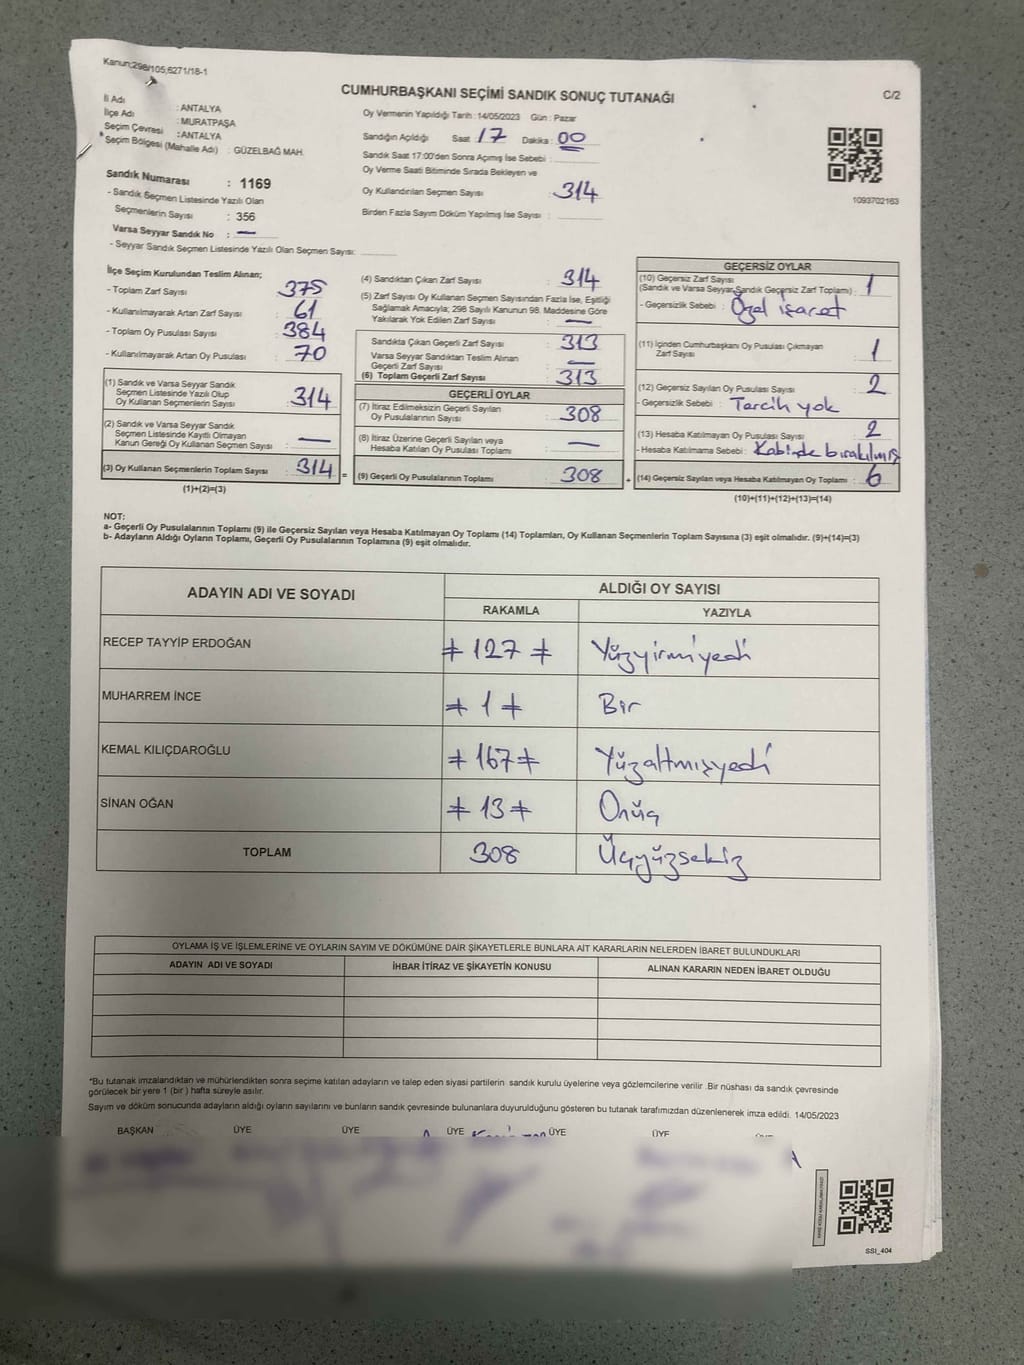 Kanun;298/105;6271/18-1
CUMHURBAŞKANI SEÇİMİ SANDIK SONUÇ TUTANAĞI
C/2
İl Adı : ANTALYA
İlçe Adı : MURATPAŞA
Seçim Çevresi : ANTALYA
Seçim Bölgesi (Mahalle Adı) : GÜZELBAĞ MAH.
Sandık Numarası : 1169
- Sandık Seçmen Listesinde Yazılı Olan
Seçmenlerin Sayısı : 356
Varsa Seyyar Sandık No : —
- Seyyar Sandık Seçmen Listesinde Yazılı Olan Seçmen Sayısı:
Oy Vermenin Yapıldığı Tarih : 14/05/2023 Gün : Pazar
Sandığın Açıldığı Saat : 17 Dakika : 00
Sandık Saat 17:00'den Sonra Açılmış İse Sebebi :
Oy Verme Saati Bitiminde Sırada Bekleyen ve
Oy Kullandırılan Seçmen Sayısı : 314
Birden Fazla Sayım Döküm Yapılmış İse Sayısı :
1093702163
İlçe Seçim Kurulundan Teslim Alınan;
- Toplam Zarf Sayısı : 375
- Kullanılmayarak Artan Zarf Sayısı : 61
- Toplam Oy Pusulası Sayısı : 384
- Kullanılmayarak Artan Oy Pusulası : 70
(1) Sandık ve Varsa Seyyar Sandık
Seçmen Listesinde Yazılı Olup
Oy Kullanan Seçmenlerin Sayısı : 314
(2) Sandık ve Varsa Seyyar Sandık
Seçmen Listesinde Kayıtlı Olmayan
Kanun Gereği Oy Kullanan Seçmen Sayısı : —
(3) Oy Kullanan Seçmenlerin Toplam Sayısı : 314 =
(1)+(2)=(3)
(4) Sandıktan Çıkan Zarf Sayısı : 314
(5) Zarf Sayısı Oy Kullanan Seçmen Sayısından Fazla İse, Eşitliği
Sağlamak Amacıyla; 298 Sayılı Kanunun 98. Maddesine Göre
Yakılarak Yok Edilen Zarf Sayısı : —
Sandıkta Çıkan Geçerli Zarf Sayısı : 313
Varsa Seyyar Sandıktan Teslim Alınan
Geçerli Zarf Sayısı : —
(6) Toplam Geçerli Zarf Sayısı : 313
GEÇERLİ OYLAR
(7) İtiraz Edilmeksizin Geçerli Sayılan
Oy Pusulalarının Sayısı : 308
(8) İtiraz Üzerine Geçerli Sayılan veya
Hesaba Katılan Oy Pusulası Toplamı : —
(9) Geçerli Oy Pusulalarının Toplamı : 308 +
GEÇERSİZ OYLAR
(10) Geçersiz Zarf Sayısı
(Sandık ve Varsa Seyyar Sandık Geçersiz Zarf Toplamı) : 1
- Geçersizlik Sebebi : Özel işaret
(11) İçinden Cumhurbaşkanı Oy Pusulası Çıkmayan
Zarf Sayısı : 1
(12) Geçersiz Sayılan Oy Pusulası Sayısı : 2
- Geçersizlik Sebebi : Tercih yok
(13) Hesaba Katılmayan Oy Pusulası Sayısı : 2
- Hesaba Katılmama Sebebi : Kabinde bırakılmış
(14) Geçersiz Sayılan veya Hesaba Katılmayan Oy Toplamı : 6
(10)+(11)+(12)+(13)=(14)
NOT:
a- Geçerli Oy Pusulalarının Toplamı (9) ile Geçersiz Sayılan veya Hesaba Katılmayan Oy Toplamı (14) Toplamları, Oy Kullanan Seçmenlerin Toplam Sayısına (3) eşit olmalıdır. (9)+(14)=(3)
b- Adayların Aldığı Oyların Toplamı, Geçerli Oy Pusulalarının Toplamına (9) eşit olmalıdır.
ADAYIN ADI VE SOYADI
ALDIĞI OY SAYISI
RAKAMLA YAZIYLA
RECEP TAYYİP ERDOĞAN ≠ 127 ≠ Yüzyirmiyedi
MUHARREM İNCE ≠ 1 ≠ Bir
KEMAL KILIÇDAROĞLU ≠ 167 ≠ Yüzaltmışyedi
SİNAN OĞAN ≠ 13 ≠ Onüç
TOPLAM 308 Üçyüzsekiz
OYLAMA İŞ VE İŞLEMLERİNE VE OYLARIN SAYIM VE DÖKÜMÜNE DAİR ŞİKAYETLERLE BUNLARA AİT KARARLARIN NELERDEN İBARET BULUNDUKLARI
ADAYIN ADI VE SOYADI İHBAR İTİRAZ VE ŞİKAYETİN KONUSU ALINAN KARARIN NEDEN İBARET OLDUĞU
*Bu tutanak imzalandıktan ve mühürlendikten sonra seçime katılan adayların ve talep eden siyasi partilerin sandık kurulu üyelerine veya gözlemcilerine verilir .Bir nüshası da sandık çevresinde
görülecek bir yere 1 (bir ) hafta süreyle asılır.
Sayım ve döküm sonucunda adayların aldığı oyların sayılarını ve bunların sandık çevresinde bulunanlara duyurulduğunu gösteren bu tutanak tarafımızdan düzenlenerek imza edildi. 14/05/2023
BAŞKAN ÜYE ÜYE ÜYE ÜYE ÜYE
SSI_404